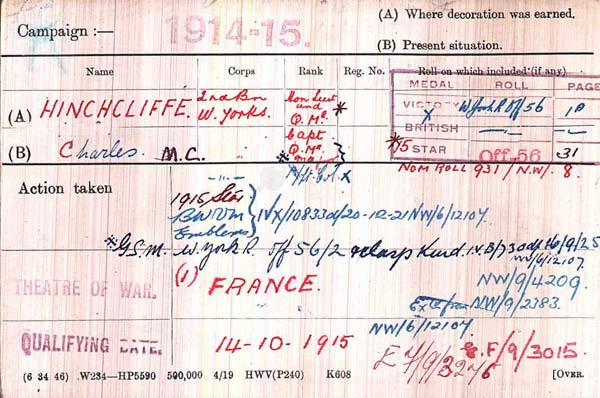 Campaign :— 1914-15.
(A) Where decoration was earned.
(B) Present situation.
Name Corps Rank Reg. No. Roll on which included (if any)
MEDAL ROLL PAGE
(A) HINCHCLIFFE. 2nd Bn W. Yorks. Hon Lieut and Q.Mr. *
VICTORY X W York R Off 56 1P
BRITISH —"— —"—
(B) Charles. M.C. " Capt Q.Mr. * Major
*15 STAR Off. 56 31
NOM ROLL 931/N.W/. 8.
Action taken
1915 Star
BWT VM
Emblems
IVX/10833d/20-12-21 NW/6/12107.
*G.S.M. W. York R. Off 56/2 Clasp Kurd. I.V.B/730d/16/9/25
NW/6/12107.
THEATRE OF WAR. (1) FRANCE.
NW/9/4209.
NW/9/2383.
NW/6/12107
QUALIFYING DATE. 14-10-1915
F/9/3015.
E 7/9/3276
(6 34 46) W234—HP5590 500,000 4/19 HWV(P240) K608 [OVER.